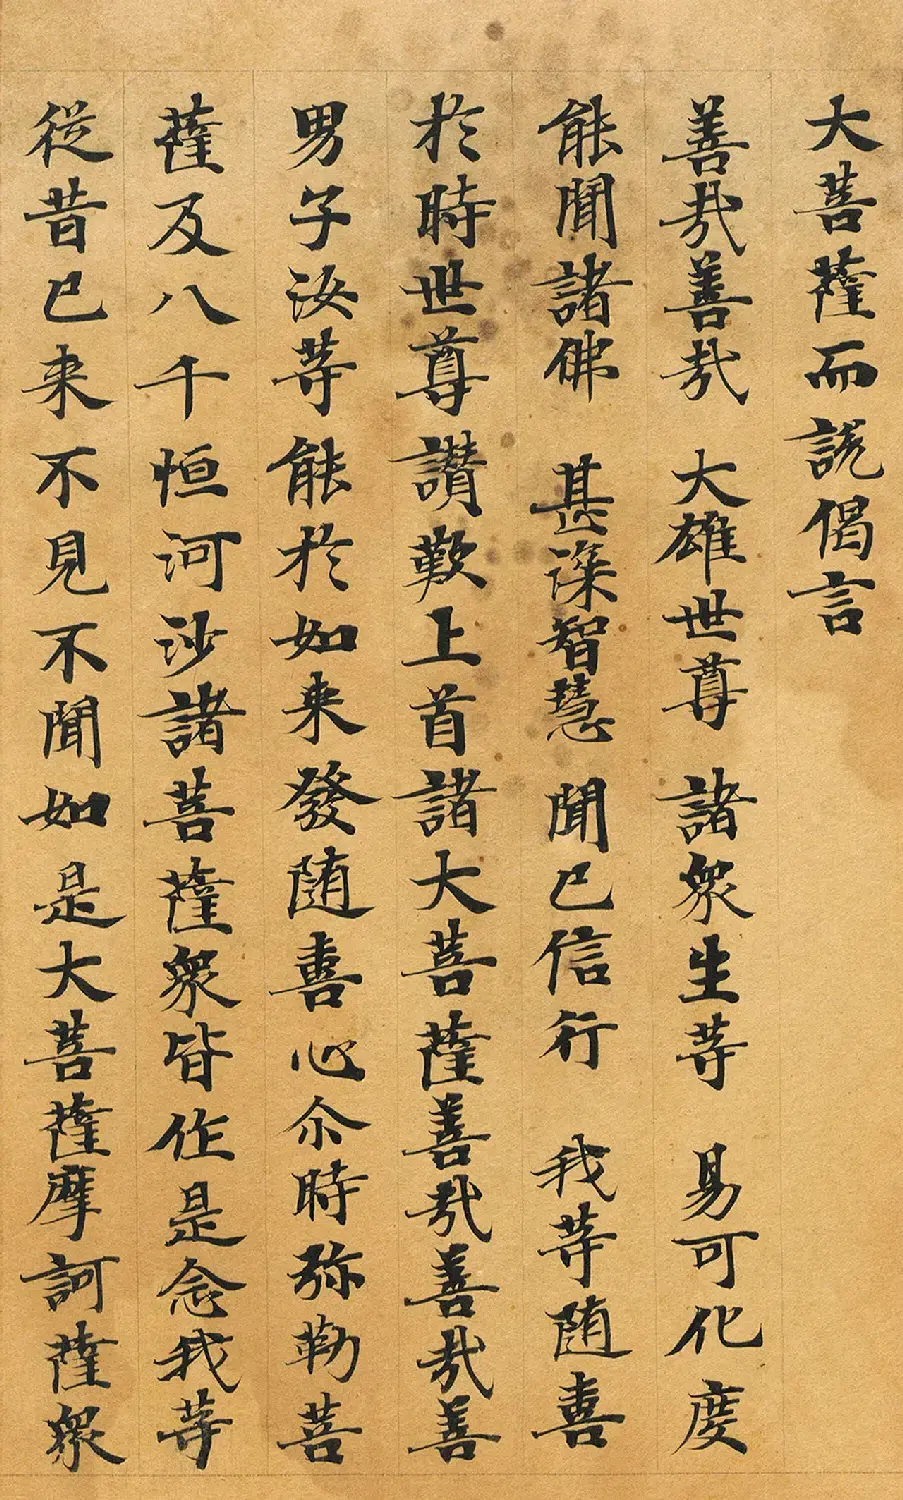 大菩薩而説偈言
善㦲善㦲 大雄世尊 諸衆生等 易可化度
能聞諸佛 甚深智慧 聞已信行 我等随喜
於時世尊讃歎上首諸大菩薩善㦲善㦲善
男子汝等能於如来發随喜心尒時弥勒菩
薩及八千恒河沙諸菩薩衆皆作是念我等
従昔已来不見不聞如是大菩薩摩訶薩衆